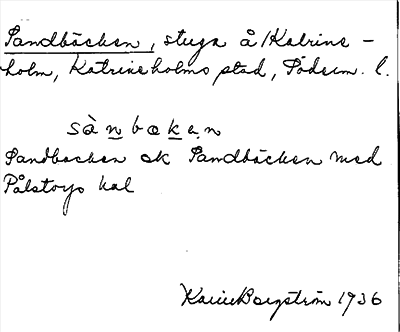 Sandbäcken, stuga å Katrine-
holm, Katrineholms stad, Söderm. l.
sànboken
Sandbacken ok Sandbäcken med
Pålstorps hal
Karin Bergström 1936